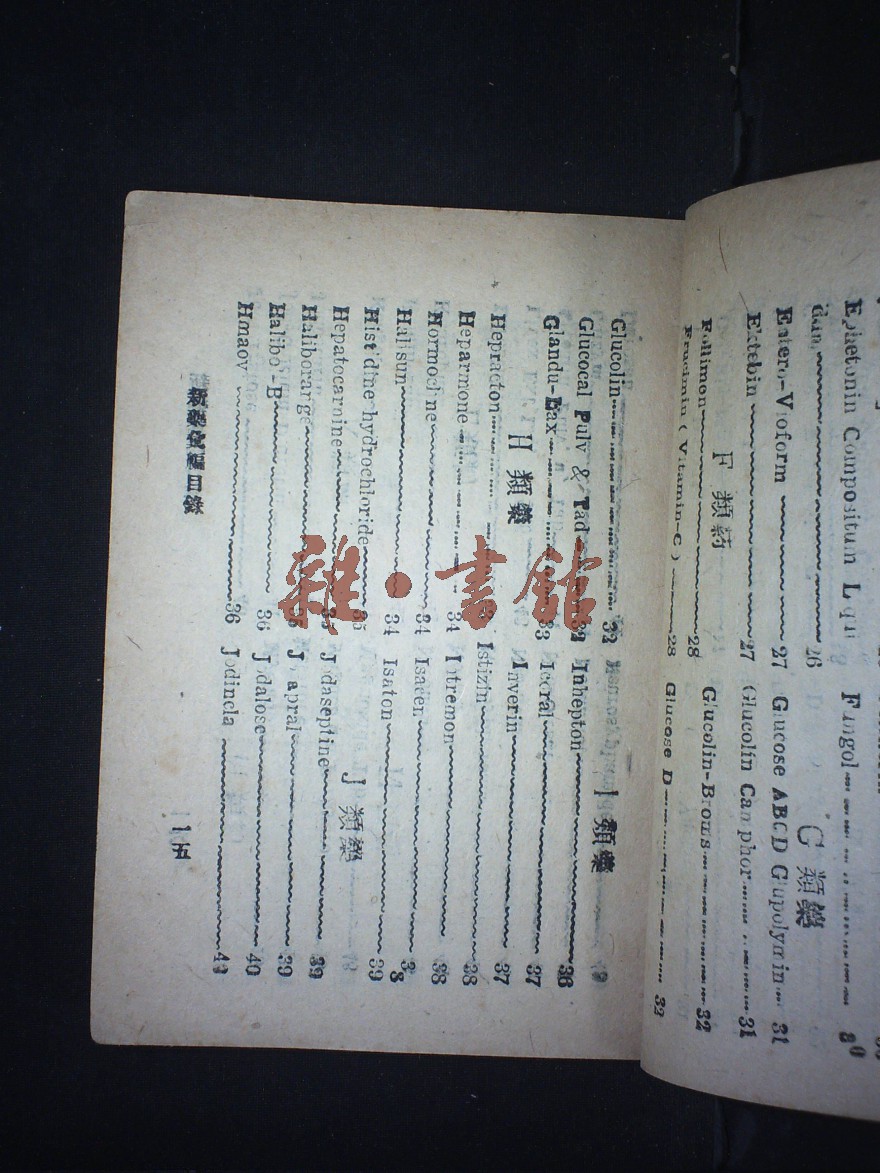 Ephetonin Compositum
26
Entero-Vioform 27
Ektebin 27
F 類葯
Follimon 28
Frucimin ( Vitamin-C ) 28
Fungol
G 類藥
Glucose ABCD Glupolymin 31
Glucolin Camphor 31
Glucolin-Broms 32
Glucose D 32
Glucolin 32
Glucocal Pulv & Tad 32
Glandu-Lax 33
H 類藥
Hepracton
Heparmone 34
Hormocline 34
Halisun 34
Histidine-hydrochloride 35
Hepatocarnine 35
Haliborange 35
Halibol-B 36
Hmaov 36
I 類藥
Inhepton 36
Icoral 37
Inverin 37
Istizin 38
Intremon 38
Isacen 38
Isaton 39
J 類藥
Jodaseptine 39
39
Jodalose 40
Jodincla 40
新藥彙編目錄
一五
雜·書館